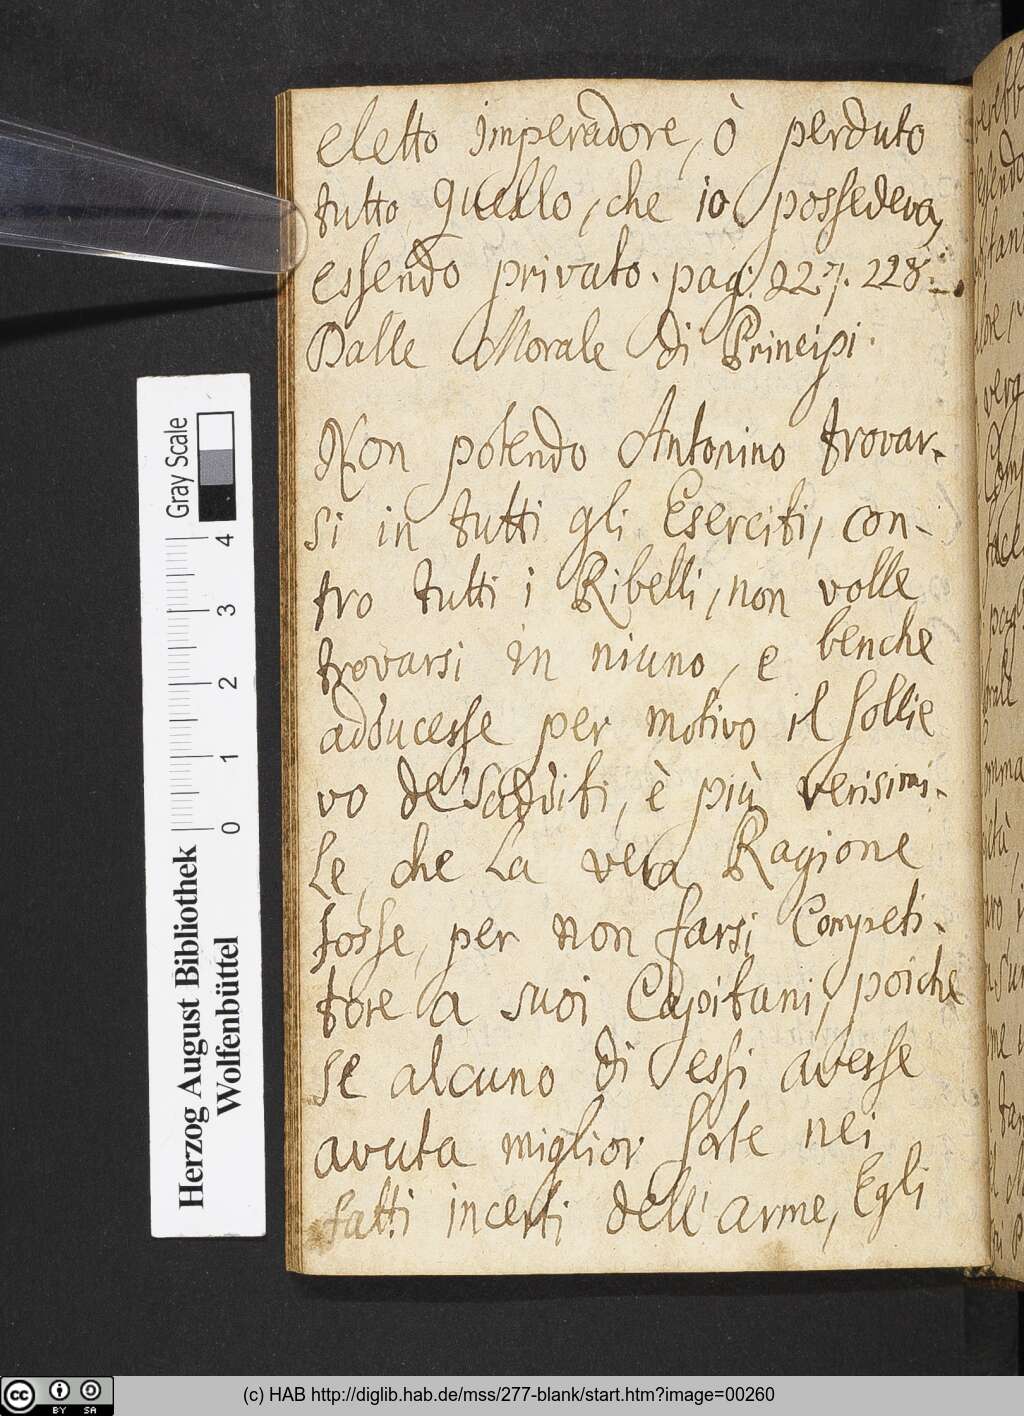 eletto Imperadore, ò perduto
tutto quello, che io possedeva,
essendo privato. pag: 227. 228.
Dalle Morale di Principi.
Non potendo Antonino trovar-
si in tutti gli Eserciti, con-
tro tutti i Ribelli, non volle
trovarsi in niuno, e benche
adducesse per motivo il sollie
vo de' Sudditi, è più verisimi-
le, che la vera Ragione
fosse, per non farsi Competi-
tore a suoi Capitani, poiche
se alcuno di essi avesse
avuta miglior sorte nei
fatti incerti dell' arme, Egli
Gray Scale
4
3
2
1
0
Herzog August Bibliothek
Wolfenbüttel
cc BY SA
(c) HAB http://diglib.hab.de/mss/277-blank/start.htm?image=00260